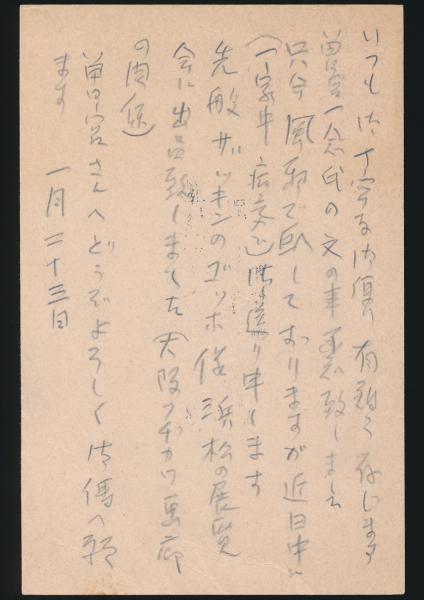 いつも御丁寧なる御便り有難く存じます
曽宮一念氏の文の事承知致しました
只今風邪で臥しておりますが近日中に
御送り申します
先般ガッキンのゴッホ様浜松の展覧
会に出品致しました（大阪フヂカワ画廊
の関係）
曽宮さんへどうぞよろしく御傳へ願
ます 一月二十三日